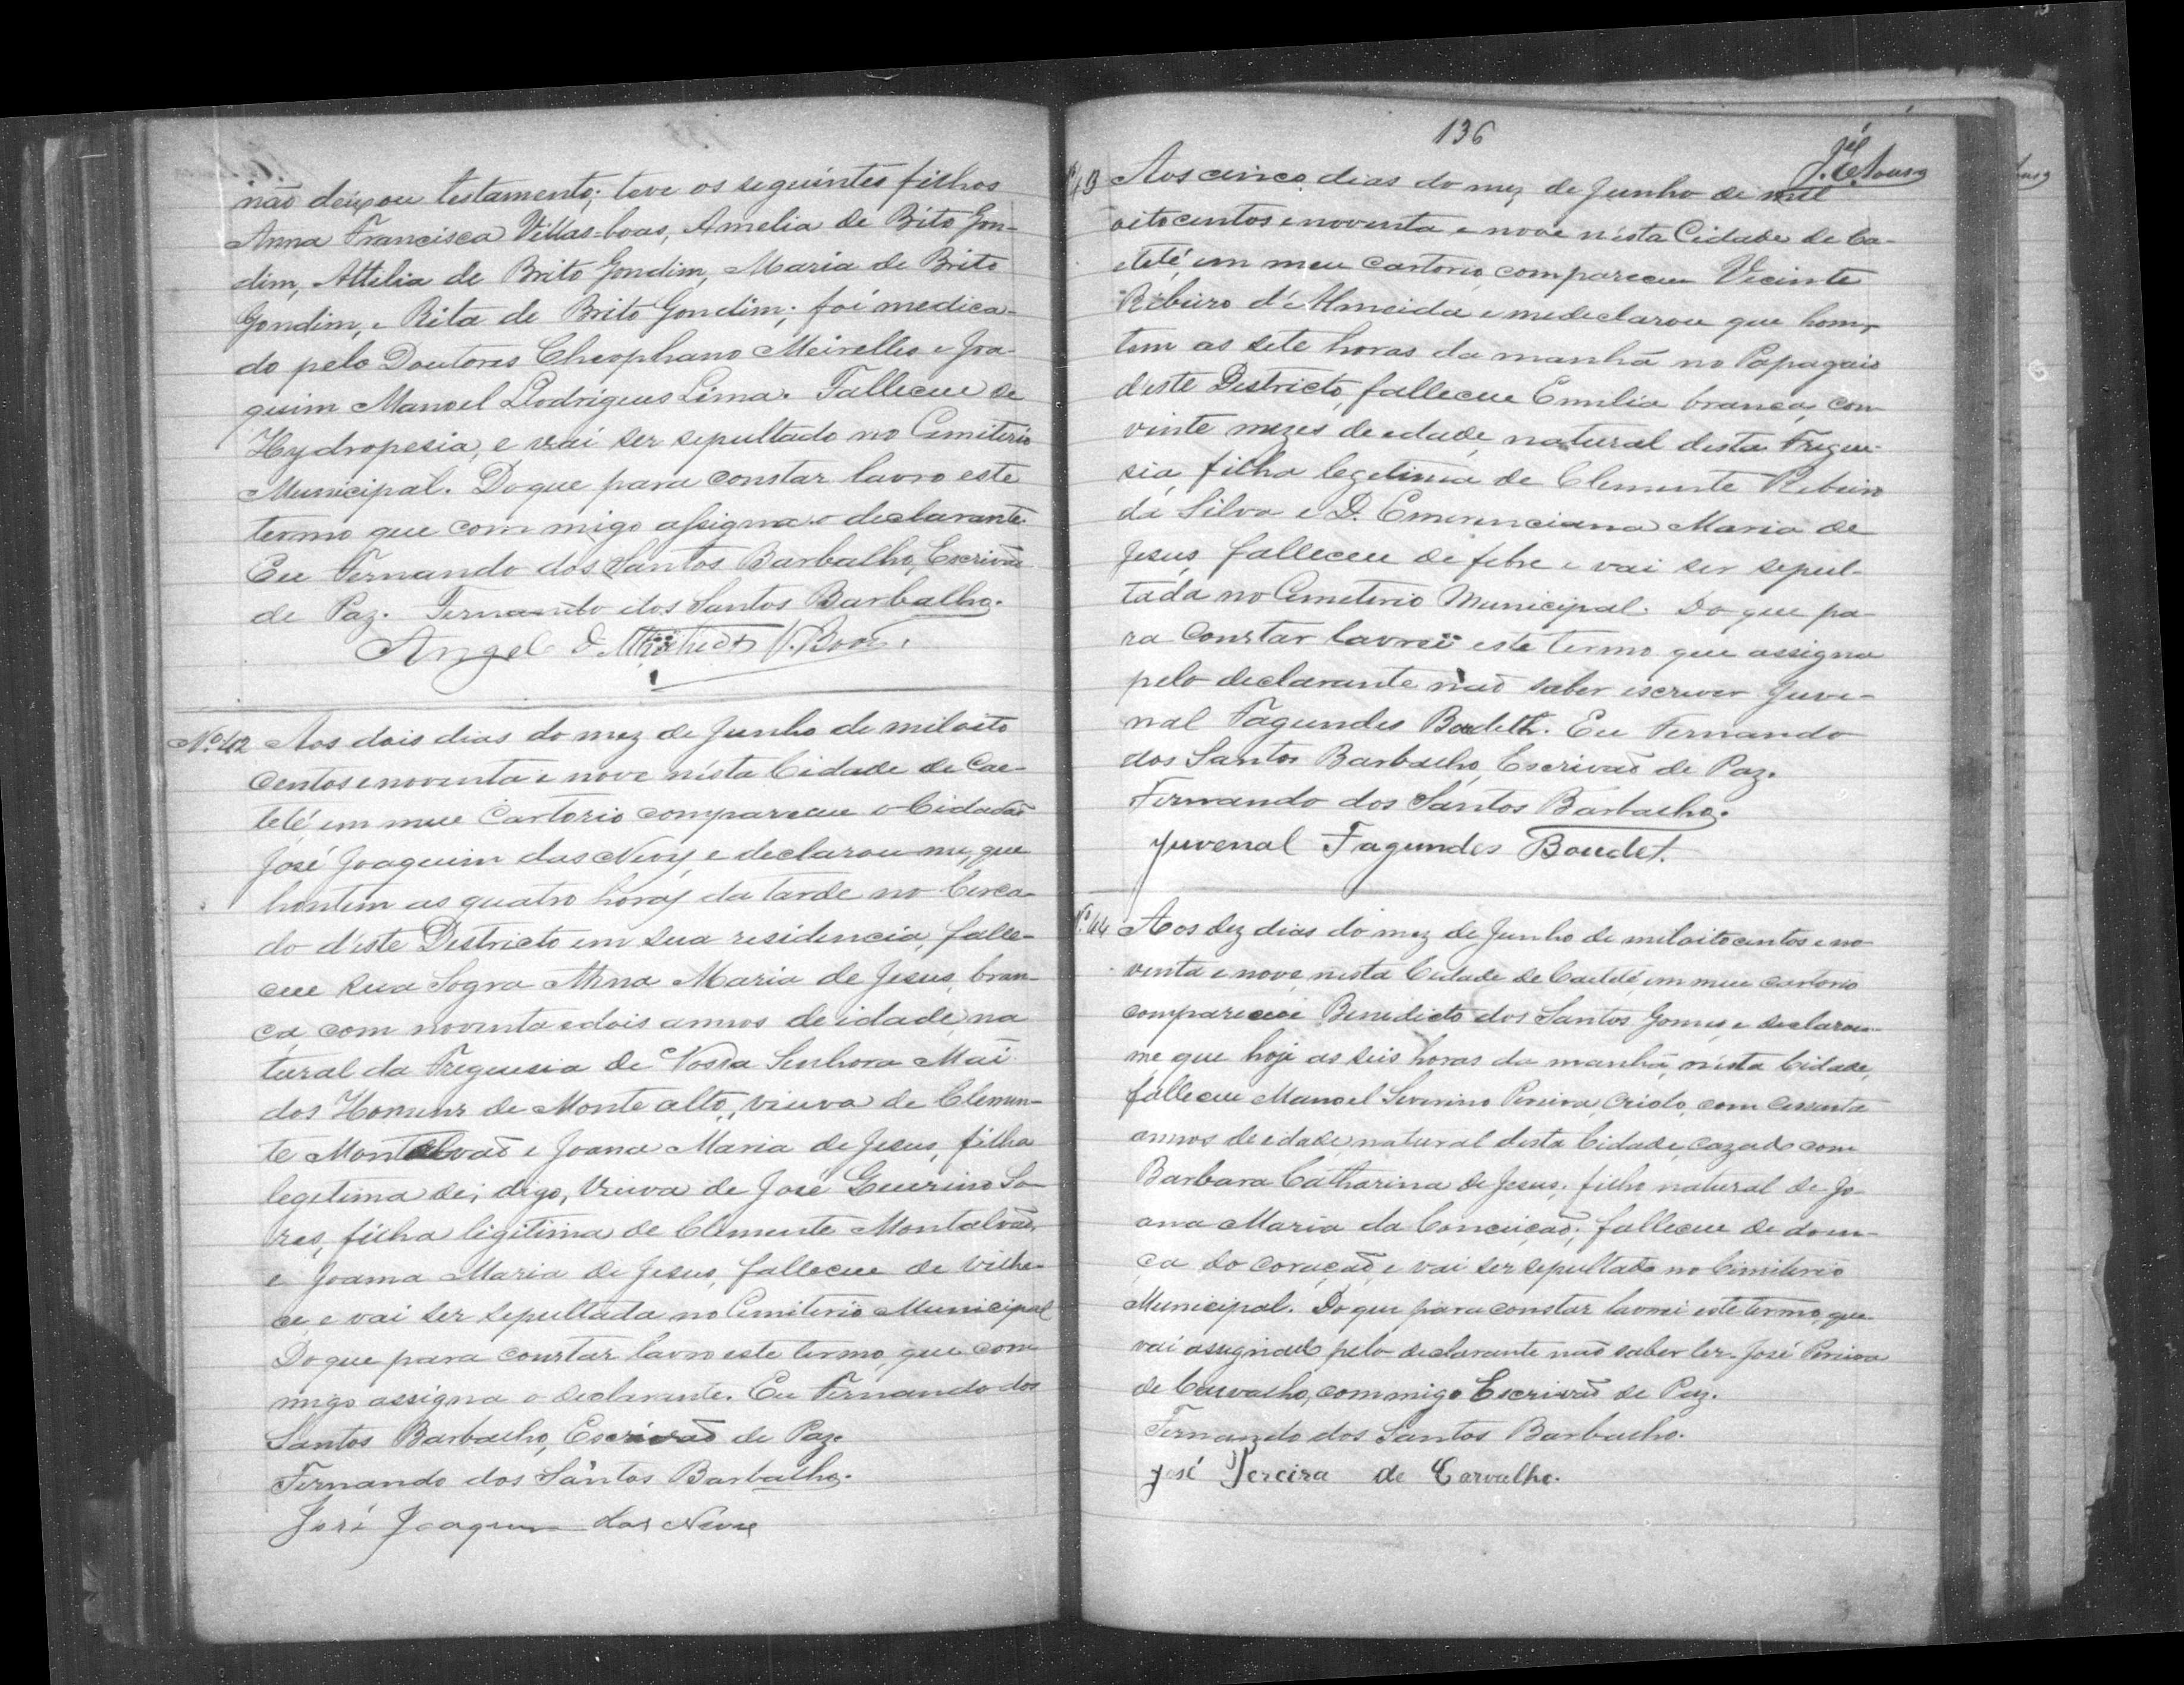 não deixou testamento; teve os seguintes filhos
Anna Francisca Villas-boas, Amelia de Brito Gon-
dim, Attilia de Brito Gondim, Maria de Brito
Gondim, e Rita de Brito Gondim; foi medica-
do pelo Doutores Cheophano Meirelles e Joa-
quim Manoel Rodrigues Lima. Falleceu de
Hydropesia, e vai ser sepultado no Cemiterio
Municipal. Do que para constar lavro este
termo que com migo assigna o declarante.
Eu Fernando dos Santos Barbalho, Escrivão
de Paz. Fernando dos Santos Barbalho.
Angelo
Nº 42 Aos dois dias do mez de Junho de mil oito
centos e noventa e nove nésta Cidade de Cae-
teté em meu Cartorio compareceu o Cidadão
José Joaquim das Neves, e declarou-me, que
hontem as quatro horas da tarde no Cerca-
do d'éste Districto em sua residencia, falle-
ceu sua Sogra Anna Maria de Jesus, bran-
ca, com noventa e dois annos de idade, na
tural da Freguesia de Nossa Senhora Mãi
dos Homens de Monte alto, viuva de Clemen-
te Montalvão e Joana Maria de Jesus, filha
legetima de; digo, viuva de José Guerino So-
res, filha ligitima de Clemente Montalvão,
e Joama Maria de Jesus, falleceu de vilhe-
ce, e vai ser sepultada no Cemiterio Municipal
Do que para constar lavro este termo, que com
migo assigna o declarante. Eu Fernando dos
Santos Barbalho, Escrivão de Paz.
Fernando dos Santos Barbalho.
José Joaquim das Neves
136
Nº 43 Aos cinco dias do mez de Junho de mil
oitocentos e noventa e nove n'esta Cidade de Ca-
eteté, em meu Cartorio, compareceu Vicente
Ribeiro d'Almeida e me declarou que hom-
tem as sete horas da manhã no Papagaio
d'este Districto, falleceu Emilia branca, com
vinte mezes de edade, natural desta Fregue-
sia, filha legetima de Clemente Ribeiro
da Silva e D. Emerenciana Maria de
Jesus, falleceu de febre e vai ser sepul-
tada no Cemeterio Municipal. Do que pa-
ra constar lavrei este termo que assigna
pelo declarante não saber escrever Juve-
nal Fagundes Boudett. Eu Fernando
dos Santos Barbalho, Escrivão de Paz.
Fernando dos Santos Barbalho.
Juvenal Fagundes Boudet.
Nº 44 Aos dez dias do mez de Junho de mil oitocentos e no-
venta e nove, nesta Cidade de Caeteté, em meu cartorio
compareceu Benedicto dos Santos Gomes, e declarou-
me que hoje as seis horas da manhã, n'esta Cidade,
falleceu Manoel Severino Pereira, criolo, com cessenta
annos de idade, natural desta Cidade, cazado com
Barbara Catharina de Jesus, filho natural de Jo-
ana Maria da Conceição, falleceu de doen-
ça do coração, e vai ser sepultado no Cimiterio
Municipal. Do que para constar lavrei este termo, que
vai assignado pelo declarante não saber ler José Pereira
de Carvalho, commigo Escrivão de Paz.
Fernando dos Santos Barbalho.
José Pereira de Carvalho.